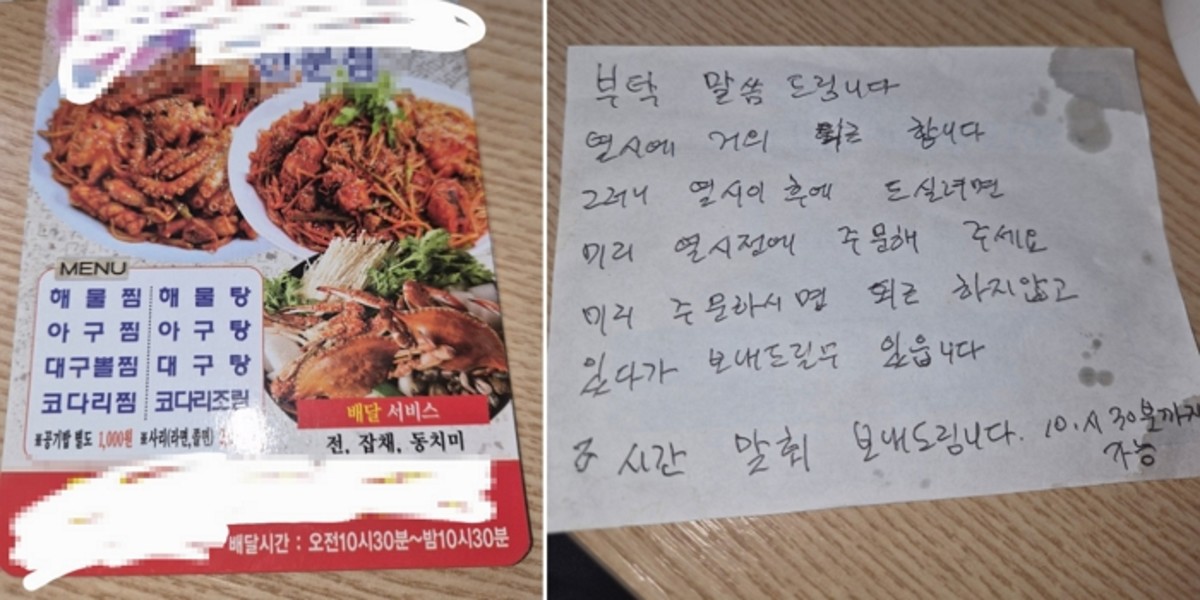 전문점
MENU
해물찜 해물탕
아구찜 아구탕
대구뽈찜 대구탕
코다리찜 코다리조림
※공기밥 별도 1,000원 ※사리(라면,쫄면)
배달 서비스
전, 잡채, 동치미
배달시간 : 오전10시30분~밤10시30분
부탁 말씀 드립니다
열시에 거의 퇴근 합니다
그러니 열시이후에 드실려면
미리 열시전에 주문해 주세요
미리 주문하시면 퇴근 하지않고
있다가 보내드릴수 있읍니다
꼭 시간 맟춰 보내드립니다. 10.시30분까지
가능